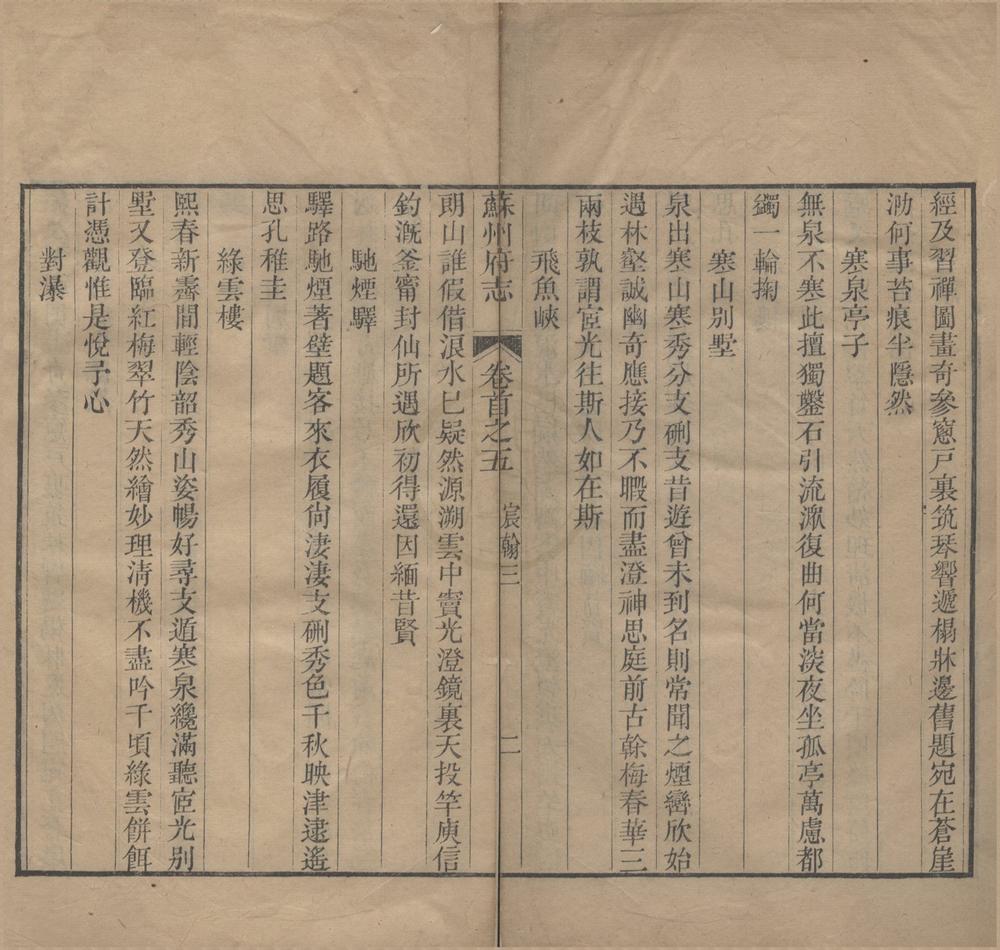 經及習禪圖畫奇參窻戸裏筑琴響遞榻牀邊舊題宛在蒼崖
泐何事苔痕半隱然
寒泉亭子
無泉不寒此擅獨鑿石引流漱復曲何當淡夜坐孤亭萬慮都
蠲一輪掬
寒山别墅
泉出寒山寒秀分支硎支昔遊曾未到名則常聞之煙巒欣始
遇林壑誠幽奇應接乃不暇而盡澄神思庭前古榦梅春華三
兩枝孰謂宧光往斯人如在斯
飛魚峽
蘇州府志 卷首之五 宸翰三 二
朗山誰假借浪水已疑然源溯雲中竇光澄鏡裏天投竿庾信
釣漑釜甯封仙所遇欣初得還因緬昔賢
馳煙驛
驛路馳煙著壁題客來衣履尙淒淒支硎秀色千秋映津逮遙
思孔稚圭
綠雲樓
熙春新霽間輕陰韶秀山姿暢好尋支遁寒泉纔滿聽宧光别
墅又登臨紅梅翠竹天然繪妙理清機不盡吟千頃綠雲餠餌
計憑觀惟是悅予心
對瀑